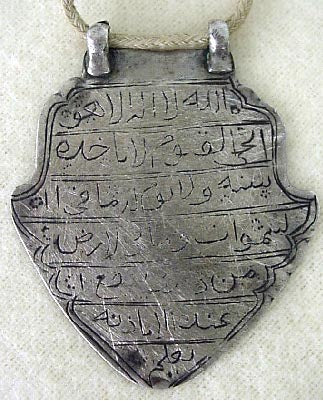 الله لا اله الا هو
الحي القيوم لا تاخذه
سنة ولا نوم له ما في ا
لسموات وما في الارض
من ذا يشفع
عنده الا باذنه
يعلم